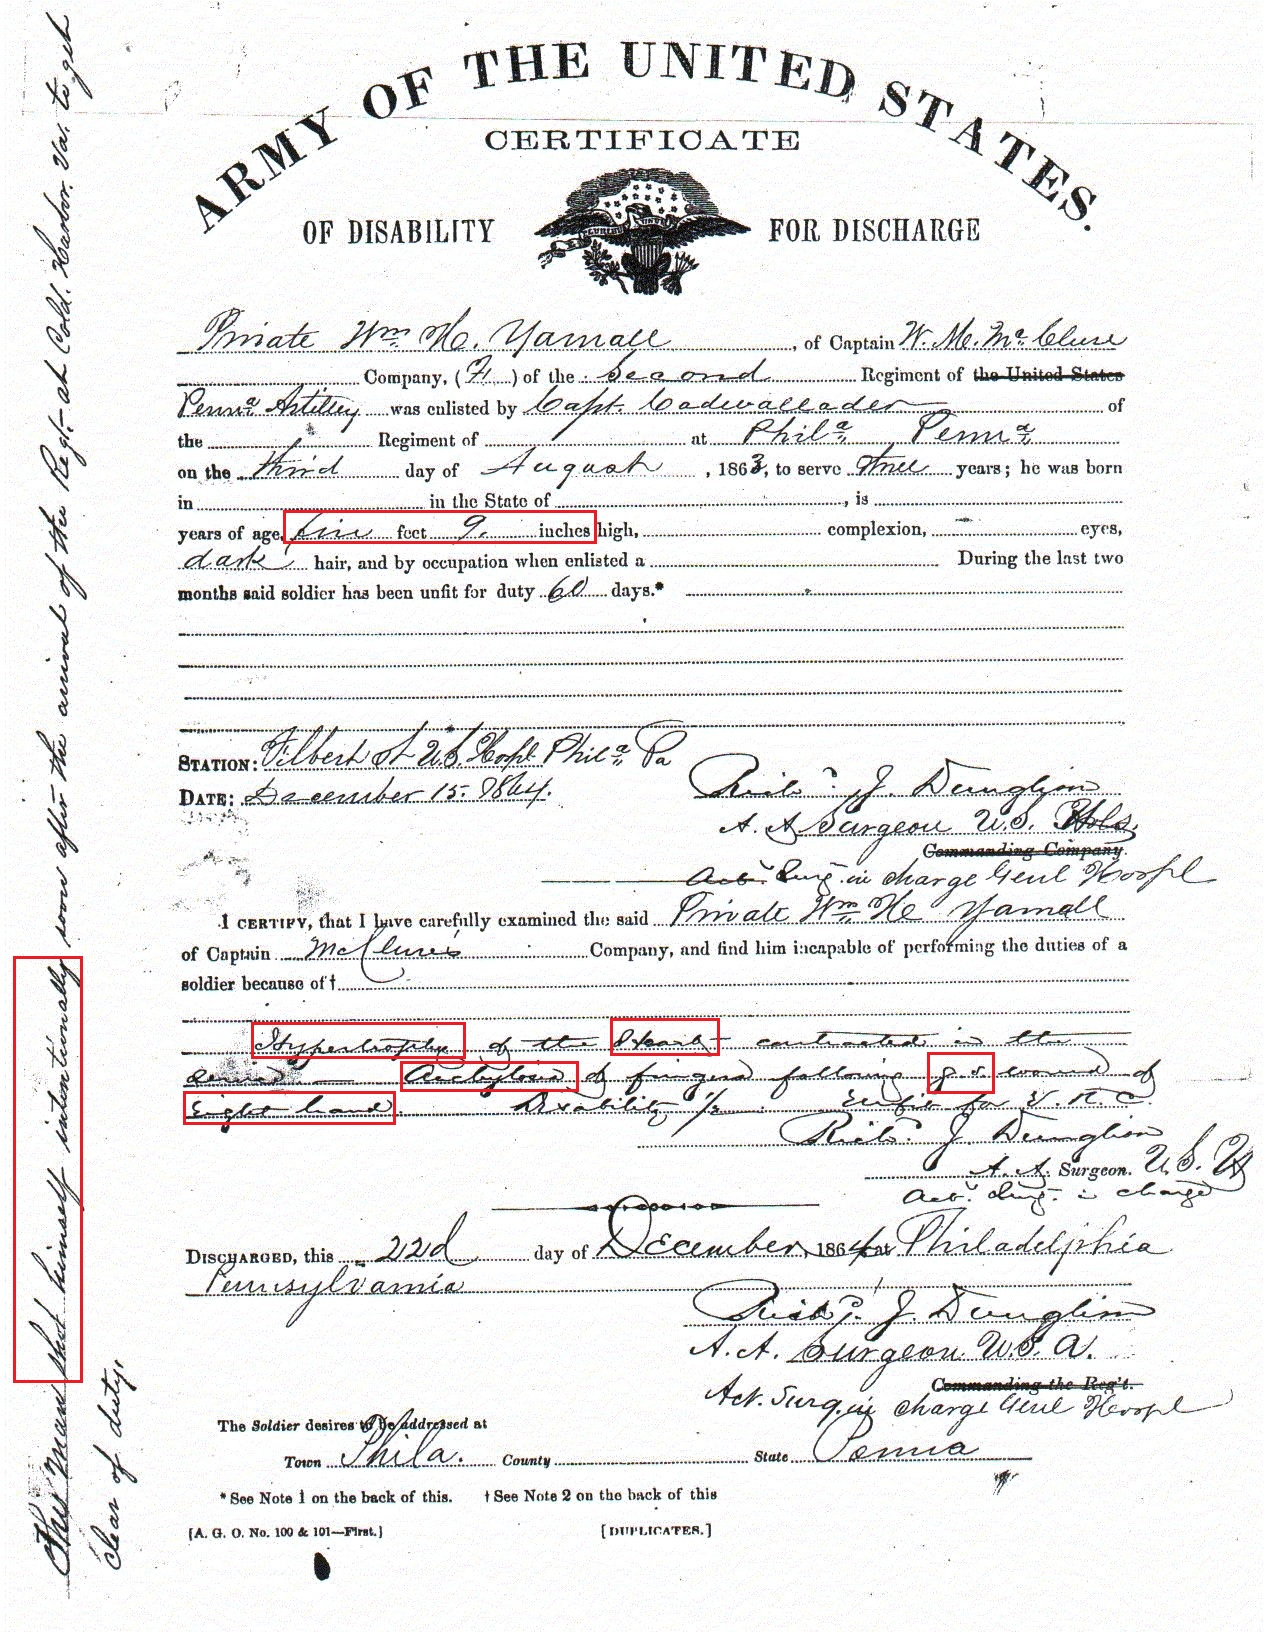 ARMY OF THE UNITED STATES.
CERTIFICATE
OF DISABILITY FOR DISCHARGE
Private Wm. H. Yarnall, of Captain W. M. McClure
Company, (F) of the Second Regiment of the United States
Penna Artillery was enlisted by Capt. Cadwallader of
the Regiment of at Phila Penna
on the third day of August, 1863, to serve three years; he was born
in in the State of , is
years of age, five feet 9. inches high, complexion, eyes,
dark hair, and by occupation when enlisted a During the last two
months said soldier has been unfit for duty 60 days.*
STATION: Filbert St U.S. Hospl. Phila Pa
DATE: December 15. 1864.
Richd. J. Dunglison
A. A. Surgeon U.S.
Commanding Company.
Act. Surg. in charge Genl Hospl
I CERTIFY, that I have carefully examined the said Private Wm H Yarnall
of Captain McClure's Company, and find him incapable of performing the duties of a
soldier because of†
Hypertrophy of the Heart contracted in the
service — Anchylosis of fingers following g.s. wound of
right hand. Disability 1/2. Unfit for V.R.C.
Richd. J. Dunglison
A. A. Surgeon. U.S.
Act. Surg. in charge
DISCHARGED, this 22d day of December, 1864, at Philadelphia
Pennsylvania
Richd. J. Dunglison
A. A. Surgeon U.S.A.
Commanding the Reg't.
Act. Surg. in charge Genl Hospl
The Soldier desires to be addressed at
Town Phila. County State Penna
* See Note 1 on the back of this. † See Note 2 on the back of this
[A. G. O. No. 100 & 101—First.] [DUPLICATES.]
This man shot himself intentionally soon after the arrival of the Regt. at Cold. Harbor. Va. to get
clear of duty.